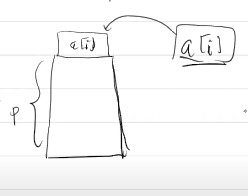 a[i]
a[i]
p